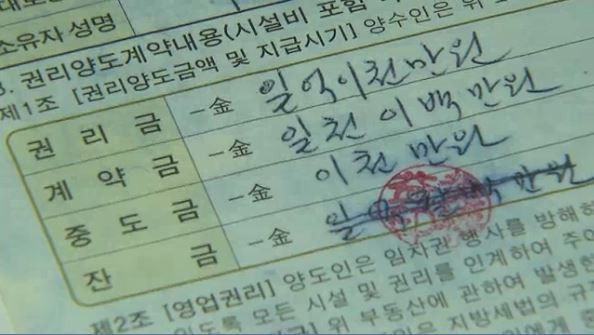 소유자 성명
3. 권리양도계약내용(시설비 포함
제1조 [권리양도금액 및 지급시기] 양수인은 위
권 리 금 一金 일억이천만원
계 약 금 一金 일천 이백만원
중 도 금 一金 이천 만원
잔 금 一金 만원
제2조 [영업권리] 양도인은 임차권 행사를 방해하
모든 시설 및 권리를 인계하여 주어
위 부동산에 관하여 발생한
지방세법의 규정